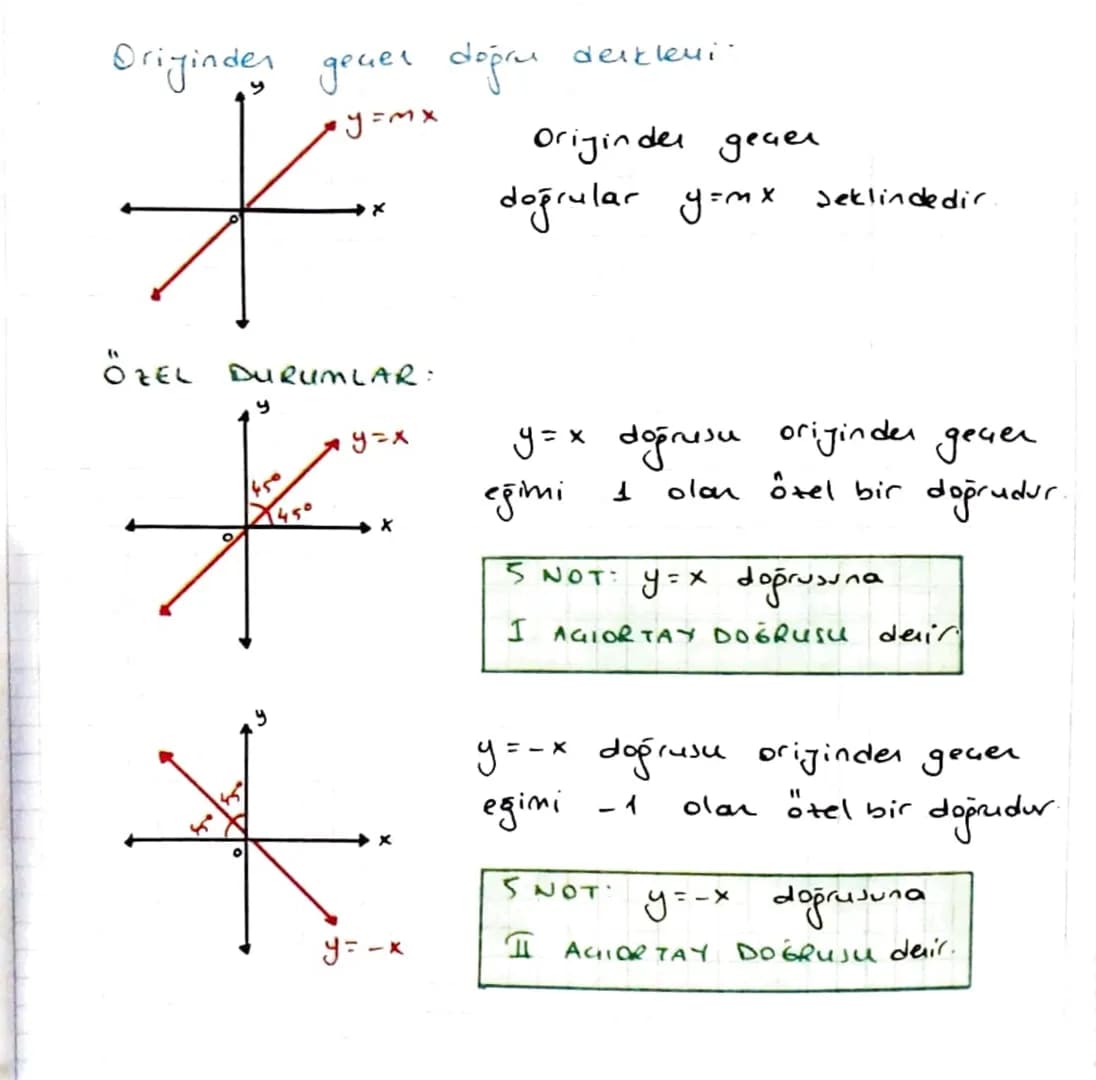 Orijinden geçen doğru denklemi:
y
y=mx
x
o
Orijinden geçen
doğrular y=mx şeklindedir.
ÖZEL DURUMLAR:
y
y=x
45°
45°
x
o
y=x doğrusu orijinden geçen
eğimi 1 olan özel bir doğrudur.
NOT: y=x doğrusuna
I AÇIORTAY DOĞRUSU denir
y
45°
45°
x
o
y=-x
y=-x doğrusu orijinden geçen
eğimi -1 olan özel bir doğrudur.
NOT: y=-x doğrusuna
II AÇIORTAY DOĞRUSU denir.